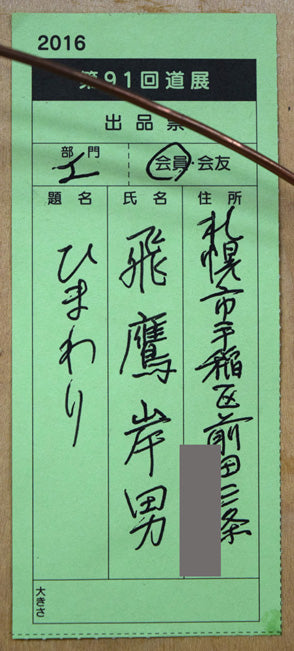 2016
第91回道展
出品票
部門
工
会員・会友
住所
札幌市手稲区前田三条
氏名
飛鷹岸男
題名
ひまわり
大きさ